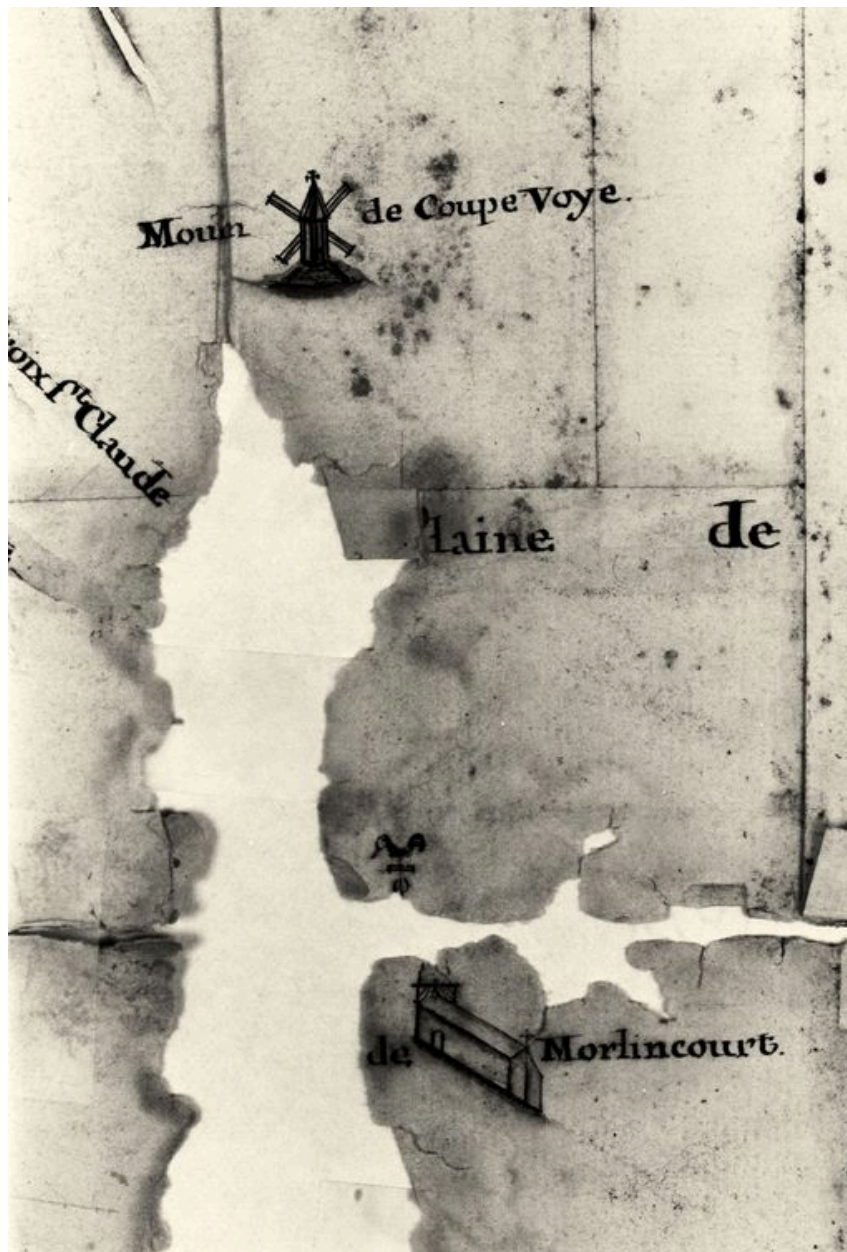 Moulin de Coupe Voye.
oix St Claude
laine de
de Morlincourt.